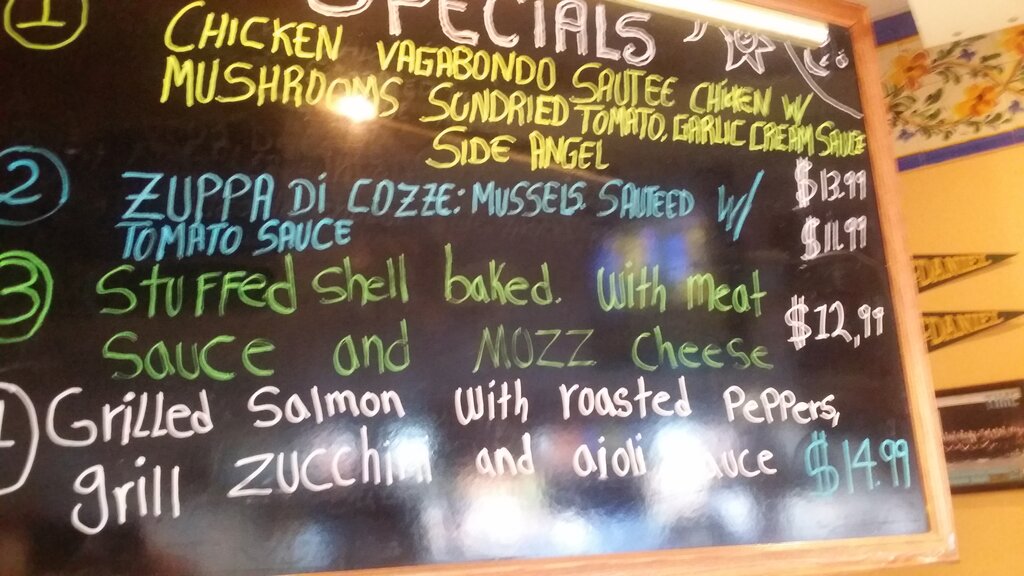 SPECIALS
1 CHICKEN VAGABONDO SAUTEE CHICKEN W/
MUSHROOMS SUNDRIED TOMATO, GARLIC CREAM SAUCE
SIDE ANGEL
$13.99
2 ZUPPA DI COZZE: MUSSELS SAUTEED W/
TOMATO SAUCE
$11.99
3 Stuffed shell baked. With meat
Sauce and MOZZ Cheese
$12,99
Grilled Salmon with roasted PePPers,
grill zucchini and aioli sauce $14.99
DANIEL
DANIEL